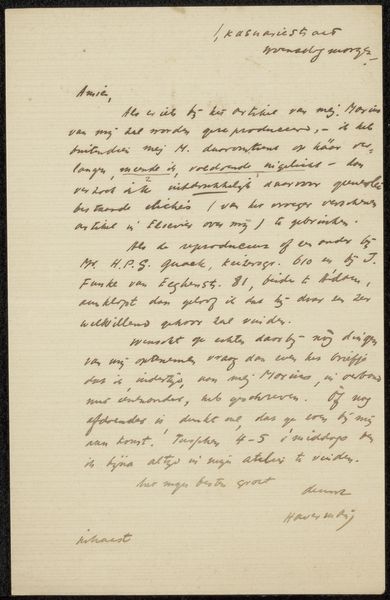 1, Kasuariestraat
woensdagmorgen
Amice,
Als er iets bij het artikel van mej. Marius
van mij zal worden gereproduceerd, – ik heb
buitendien mej M. daaromtrent op háár ver-
langen, meende ik, voldoende ingelicht – dan
verzoek ik uitdrukkelijk daarvoor
bestaande clichés (van het vroeger verschenen
artikel in Elsevier over mij) te gebruiken.
Als de reproducent of een ander bij
Mr. H.P.G. Quack, Keizersgr. 610 en bij J.
Funke van Eeghenstr. 81, beide te A'dam,
aanklopt dan geloof ik dat hij daar een zeer
welwillend gehoor zal vinden.
Wenscht ge echter daarbij nòg dingen
van mij opgenomen vraag dan even het briefje
dat ik, indertijd, aan mej Marius, in verband
met, heb geschreven. Òf nog
afdoender is, dunkt me, dat ge even bij mij
aan komt. Tusschen 4–5 's middags ben
ik bijna altijd in mijn atelier te vinden.
Met mijn besten groet
Haverman
inhaast